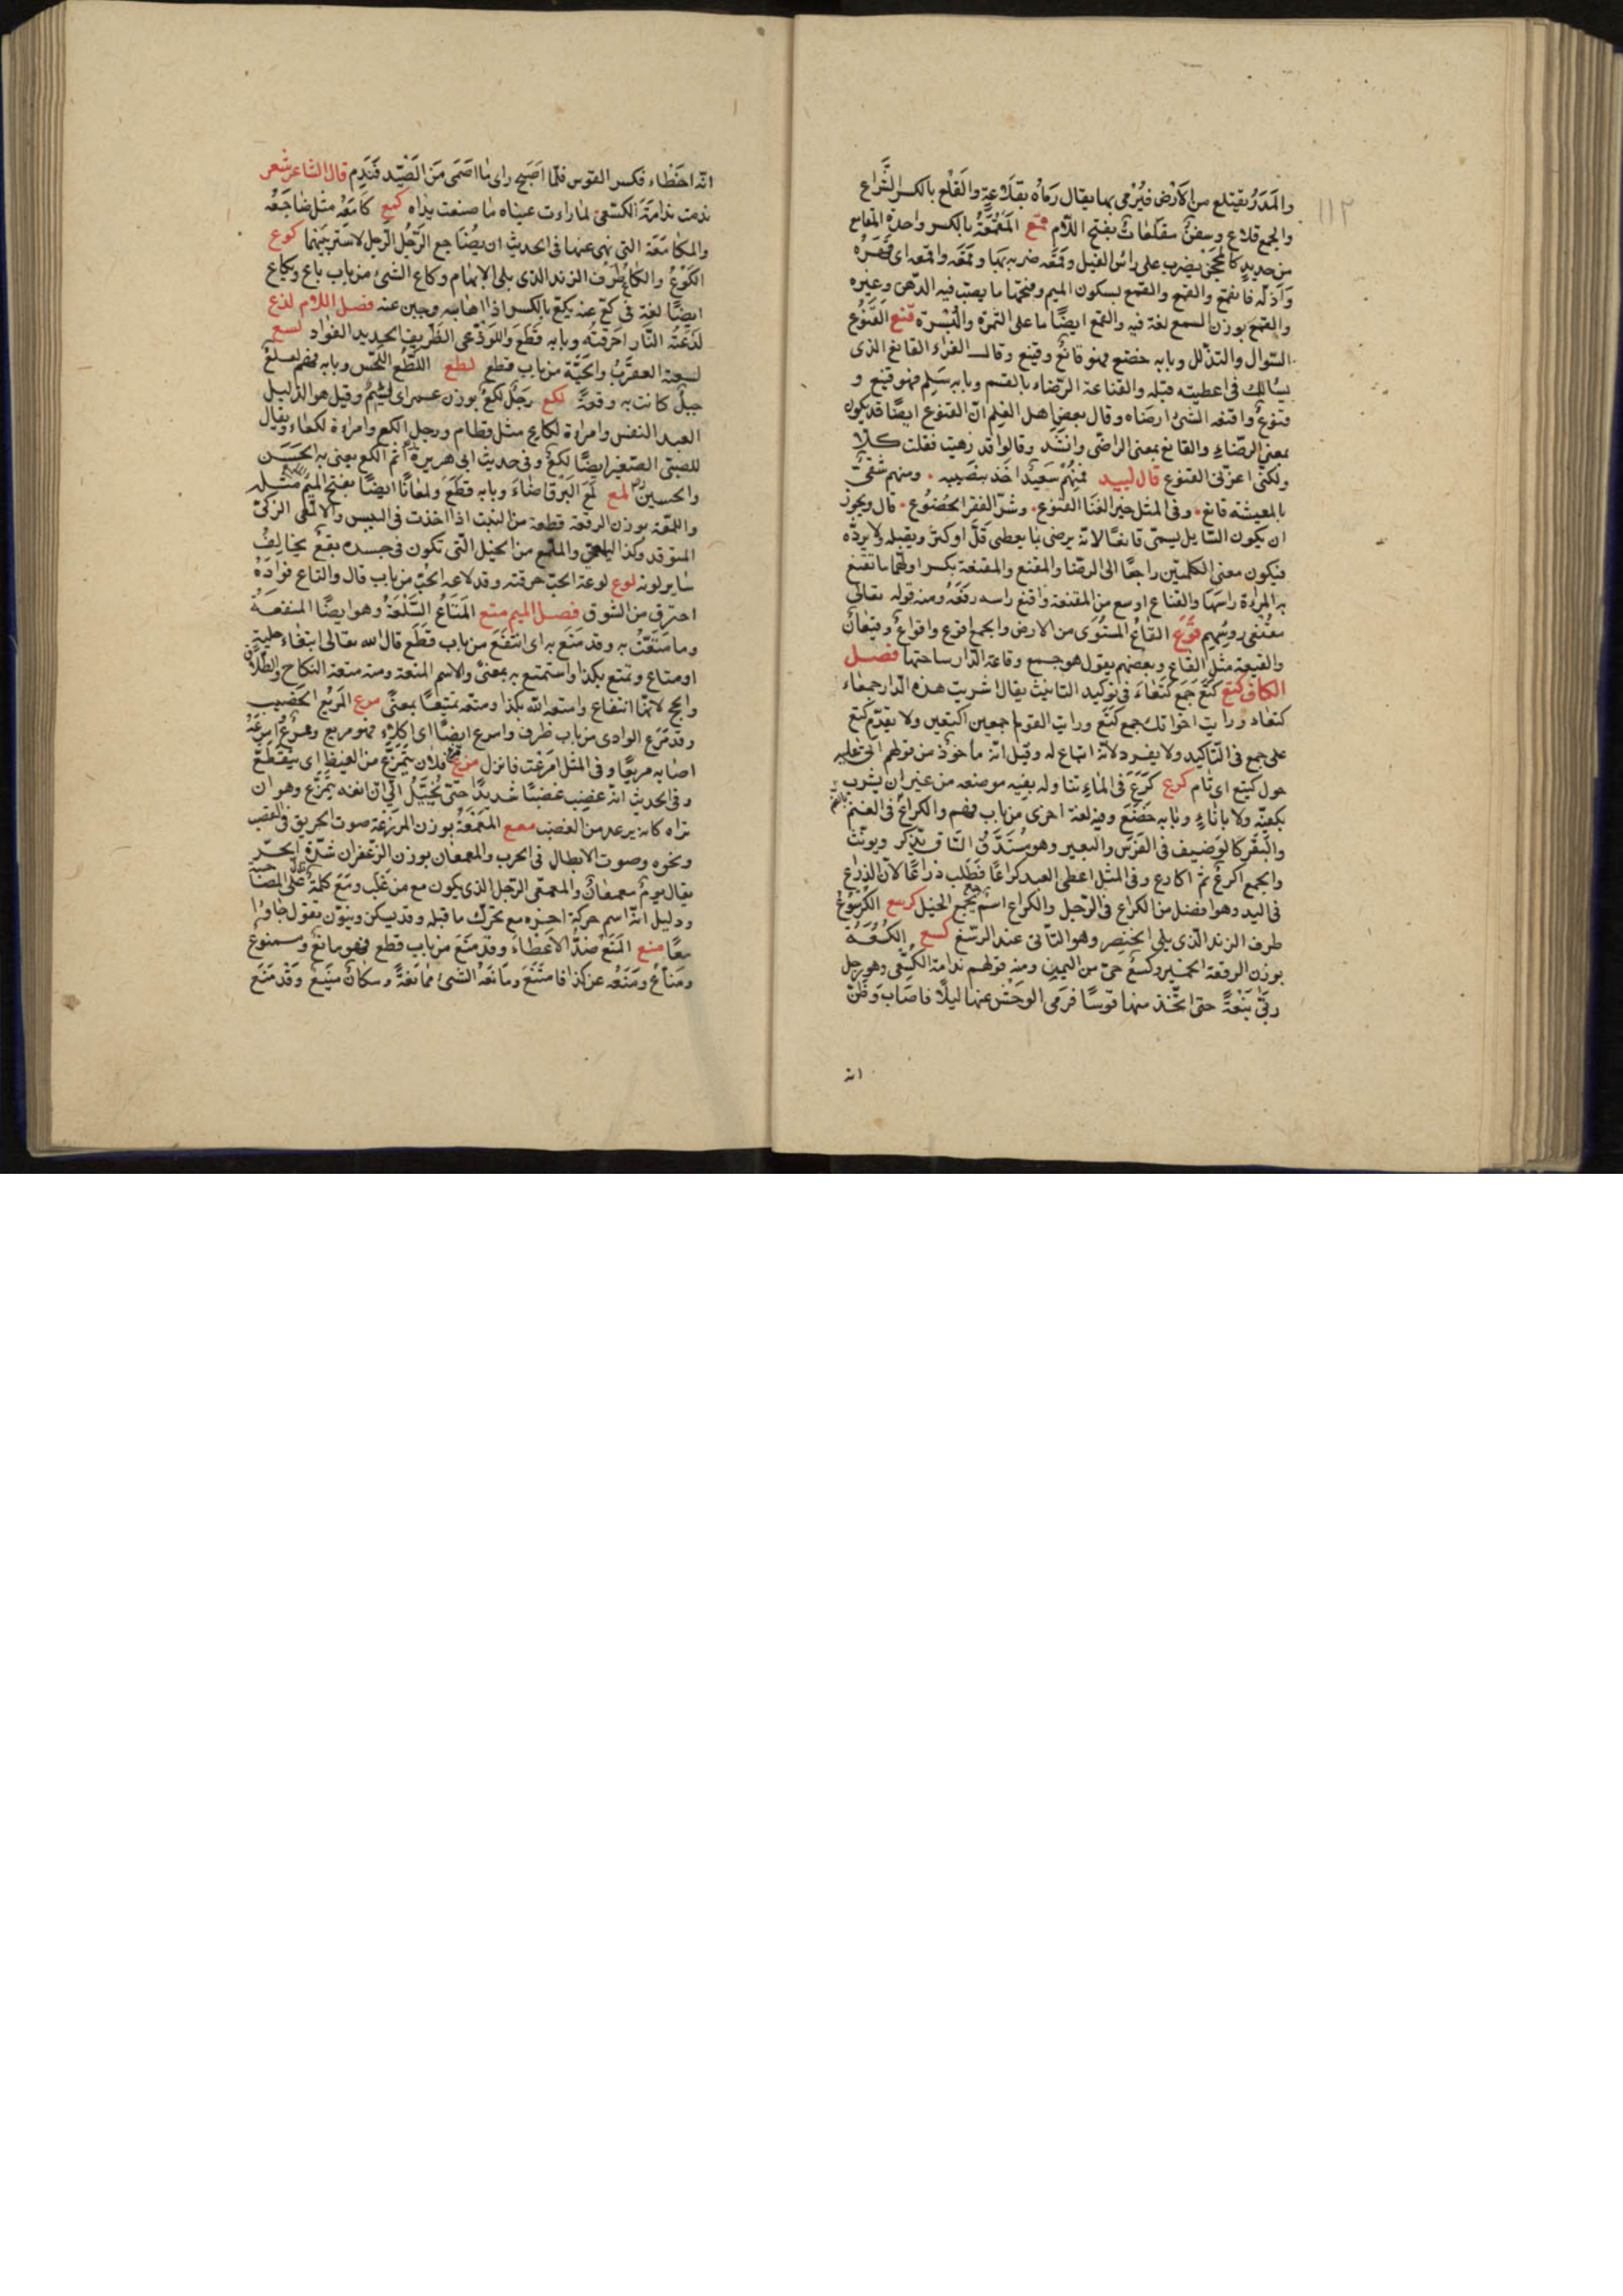 ١١٢
والمَدَرُ يقتلع من الأرض فيُرْمى بها يقال رَمَاه بقلاعةٍ والقلع بالكسر الشراع
والجمع قلاع وسفنٌ مقلعات بفتح اللّام قمع المَقْمَعَةُ بالكسر واحدة المقامع
من حديد كالمحجن يضرب على راس الفيل وقمعه ضربه بها وقمعه واقمعه اى قهره
واذله فانقمع والقمع والقمع بسكون الميم وفتحها ما يصب فيه الدهن وغيره
والقمع بوزن السمع لغة فيه والقمع ايضًا ما على التمرة والبسرة قنع القنوع
السّوال والتذلّل وبابه خضع فهو قانعٌ وقنيع وقال الفراء القانع الذى
يسالك فما اعطيته قبله والقناعة الرضاء بالقسم وبابه سَلِم فهو قنع و
قنوعٌ واقنعه الشئ ارضاه وقال بعض اهل العلم انّ القنوع ايضًا قد يكون
بمعنى الرضاء والقانع بمعنى الراضى وانشد وقالوا قد زهيت فقلت كلا
ولكنى اعزّنى القنوع قال لبيد فمنهم سعيدٌ اخذ بنصيبه ٠ ومنهم شقىٌّ
بالمعيشة قانع ٠ وفى المثل خير الغنا القنوع ٠ وشرّ الفقر الخضوع ٠ قال ويجوز
ان يكون السّايل يسمّى قانعًا لانّه يرضى بما يعطى قلّ او كثر ويقبله ولا يردّه
فيكون معنى الكلمتين راجعًا الى الرضا والمقنع والمقنعة بكسر اولهما ما تقنع
به المراءة راسها والقناع اوسع من المقنعة واقنع راسه رفعه ومنه قوله تعالى
مقنعى روسهم قوع القاعُ المستوى من الارض والجمع اقوع واقواع وقيعان
والقيعة مثل القاع وبعضهم يقول هو جمع وقاعة الدار ساحتها فصل
الكاف كتع كُتَع جمع كتعاء فى توكيد التانيث يقال اشتريت هذه الدار جمعاء
كتعاء ورايت اخواتك جمع كتع ورايت القوم اجمعين اكتعين ولا يقدّم كتع
على جمع فى التاكيد ولا يفرد لانّه اتباع له وقيل انّه ماخوذ من قولهم اتى عليه
حول كتيع اى تام كرع كَرَعَ فى الماء تناوله بفيه من موضعه من غير ان يشرب
بكفيّه ولا باناءٍ وبابه خضع وفيه لغة اخرى من باب فهم والكراع فى الغنم
والبقر كالوضيف فى الفرس والبعير وهو مستدقّ الساق يذكّر ويونّث
والجمع اكرعٌ ثم اكارع وفى المثل اعطى العبد كراعًا فطلب ذراعًا لانّ الذراع
فى اليد وهو افضل من الكراع فى الرّجل والكراع اسم يجمع الخيل كرسع الكرسوع
طرف الزند الّذى يلى الخنصر وهو الناتى عند الرسغ كسع الكسعة
بوزن الرقعة الحمير وكسع حىّ من اليمن ومنه قولهم ندامة الكسعى وهو رجل
ربّى نبعةً حتى اتّخذ منها قوسًا فرمى الوحش عنها ليلًا فاصاب وظنّ
انه
انّه اخطاء فكسر القوس فلمّا اصبح راى ما اصمى من الصّيد فندم قال الشاعر شعر
ندمت ندامة الكسعىّ لما راءت عيناه ما صنعت يداه كمع كامعه مثل ضاجعه
والمكامعة التى نهى عنها فى الحديث ان يضاجع الرّجُل الرّجل لا ستر بينهما كوع
الكوع والكاع طرف الزند الذى يلى الابهام وكاع الشئ من باب باع ويكاع
ايضًا لغة فى كعّ عنه يكعّ بالكسر اذا هابه وجبن عنه فصل اللام لذع
لذعته النّار احرقته وبابه قطع واللوذعى الظّريف الحديد الفؤاد لسع
لسعته العقربُ والحيّة من باب قطع لطع اللّطع اللّحس وبابه فهم لعلع
جبلٌ كانت به وقعةٌ لكع رجلٌ لكعٌ بوزن عمر اى لئيمٌ وقيل هو الذليل
العبد النفس وامراءة لكاع مثل قطام ورجل الكع وامراءة لكعاء ويقال
للصبىّ الصّغير ايضًا لكعٌ وفى حديث ابى هريرة أثم لكع يعنى به الحسن
والحسين لمع لمع البرق اضاء وبابه قطع ولمعانًا ايضًا بفتح الميم مثله
واللمعة بوزن الرقعة قطعة من النبت اذا اخذت فى اليبس والالمعى الزكىّ
المتوقد وكذا اليلمعى والملمع من الخيل الّتى تكون فى جسده بقعٌ يخالف
ساير لونه لوع لوعة الحبّ حرقته وقد لاعه الحبّ من باب قال والتاع فؤاده
احترق من الشوق فصل الميم متع المتاع السّلعة وهو ايضًا المنفعة
وما متّعت به وقد متع به اى انتفع من باب قطع قال الله تعالى ابتغاء حلية
او متاع وتمتع بكذا واستمتع به بمعنىً والاسم المتعة ومنه متعة النكاح والطلاق
والحج لانّها انتفاع وامتعه الله بكذا ومتعه تمتيعًا بمعنىً مرع المريع الخصيب
وقد مرع الوادى من باب ظرف وامرع ايضًا اى اكلاء فهو مريع وممرع امرعته
اصابه مريعًا وفى المثل امرعت فانزل مزع فلان يتمزّع من الغيظ اى يتقطّع
وفى الحديث انّه غضب غضبًا شديدًا حتى تخيّل الىّ ان انفه يتمزّع وهو ان
تراه كانه يرعد من الغضب معع المعمعة بوزن المزرعة صوت الحريق فى القصب
ونحوه وصوت الابطال فى الحرب والمعمعان بوزن الزّعفران شدّة الحرّ
يقال يوم معمعان والمعمعى الرّجل الذى يكون مع من غلب ومع كلمة تدل على المصاحبة
ودليل انّه اسم حركة اخره مع تحرّك ما قبله وقد يسكن وينوّن تقول جاوا
معًا منع المنع ضدّ الاعطاء وقد منع من باب قطع فهو مانع ومنوع
ومناع ومنعه عن كذا فامتنع ومانعه الشئ ممانعةً ومكانٌ منيع وقد منع